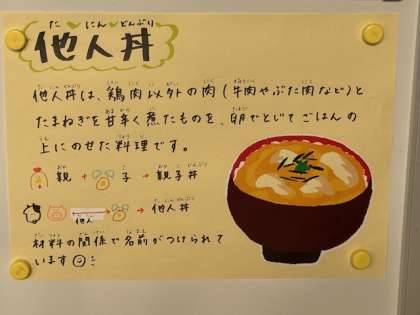 他人丼
他人丼は、鶏肉以外の肉(牛肉やぶた肉など)と
たまねぎを甘辛く煮たものを、卵でとじてごはんの
上にのせた料理です。
親 + 子 → 親子丼
他人 → 他人丼
材料の関係で名前がつけられて
います